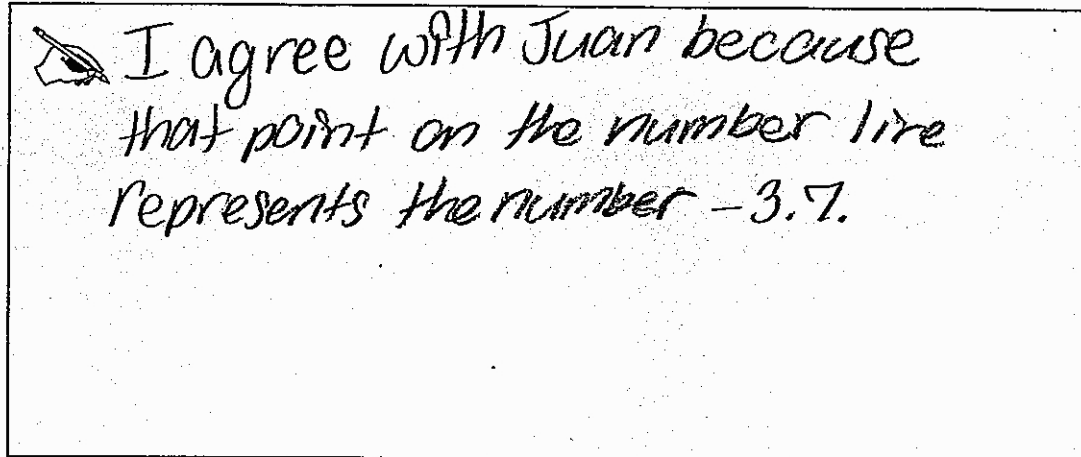 I agree with Juan because
that point on the number line
represents the number -3.7.